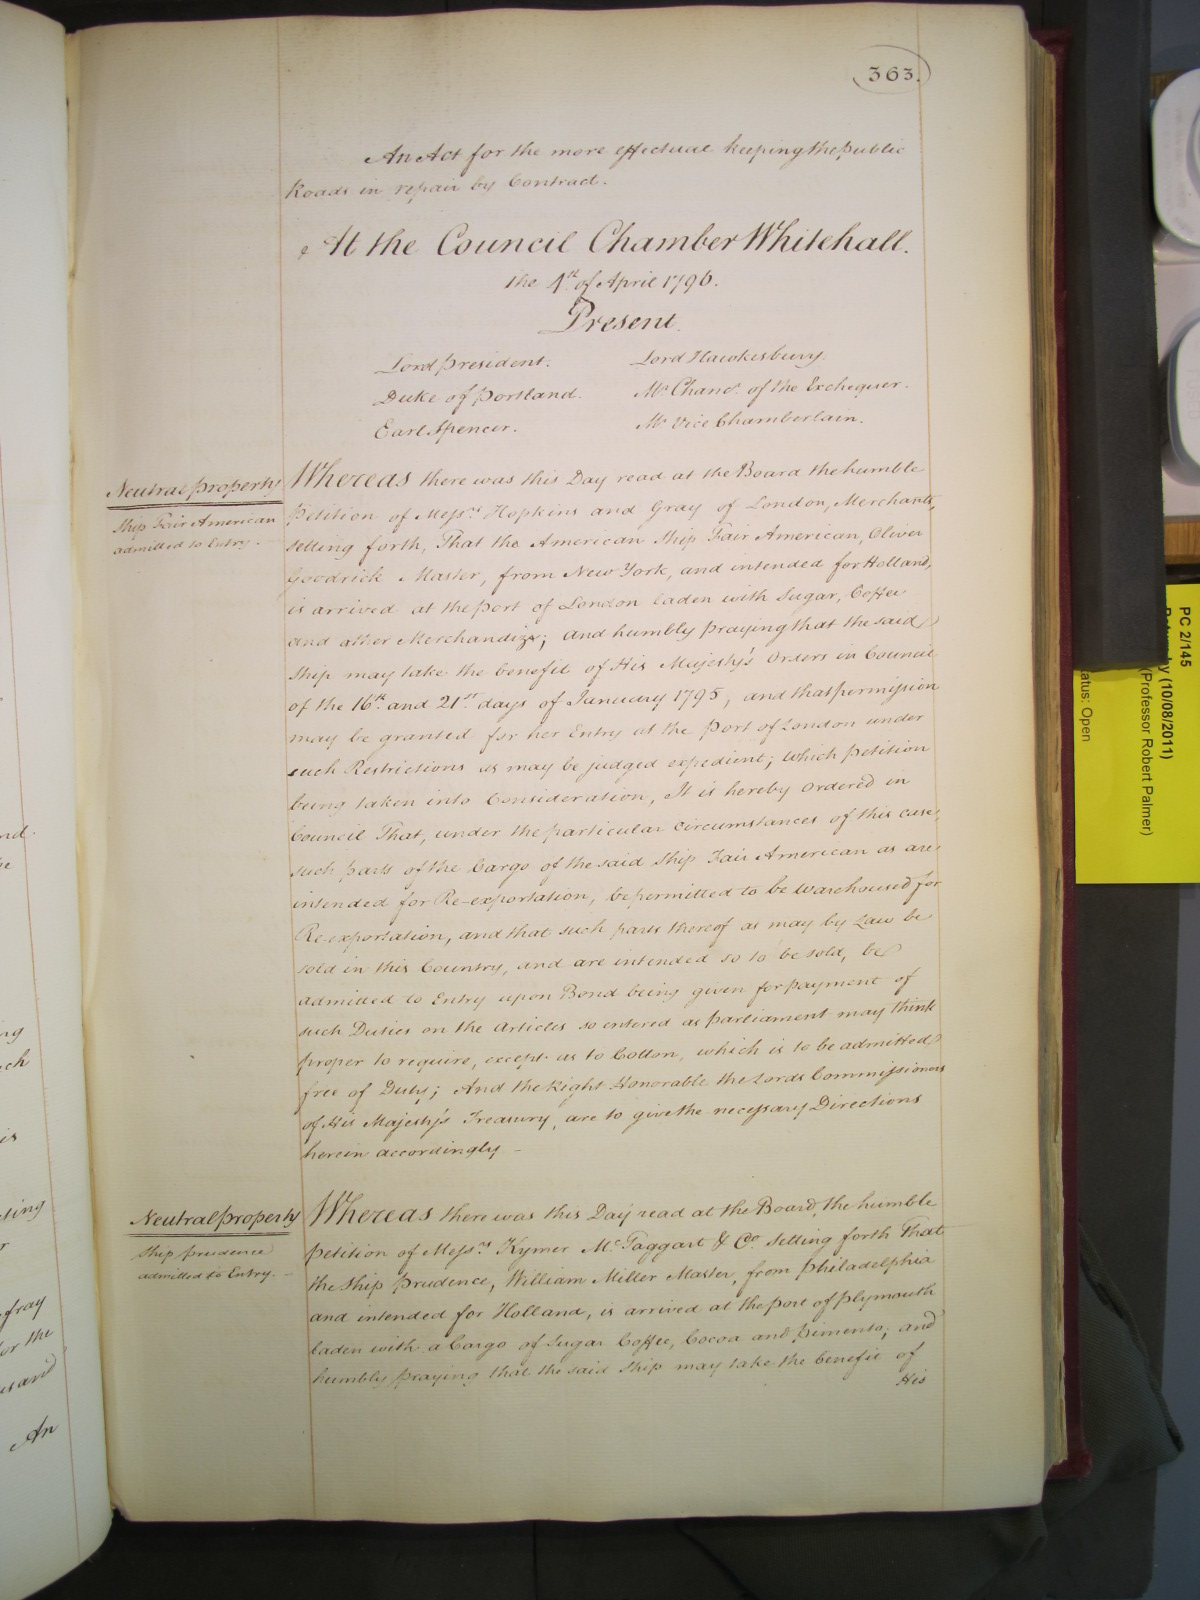 363.
An Act for the more effectual keeping the public
Roads in repair by Contract.
At the Council Chamber Whitehall.
the 1st of April 1796.
Present
Lord President.
Lord Hawkesbury
Duke of Portland.
Mr Chanr. of the Exchequer.
Earl Spencer.
Mr Vice Chamberlain.
Neutral property
Ship Fair American
admitted to Entry.
Whereas there was this Day read at the Board the humble
Petition of Messrs Hopkins and Gray of London, Merchants,
setting forth, That the American Ship Fair American, Oliver
Goodrick Master, from New York, and intended for Holland,
is arrived at the port of London laden with Sugar, Coffee
and other Merchandize; and humbly praying that the said
Ship may take the benefit of His Majesty's Orders in Council
of the 16th and 21st days of January 1795, and that permission
may be granted for her Entry at the Port of London under
such Restrictions as may be judged expedient; which petition
being taken into Consideration, It is hereby ordered in
Council That, under the particular circumstances of this case,
such parts of the Cargo of the said Ship Fair American as are
intended for Re-exportation, be permitted to be warehoused for
Re-exportation, and that such parts thereof as may by Law be
sold in this Country, and are intended so to be sold, be
admitted to Entry upon Bond being given for payment of
such Duties on the Articles so entered as parliament may think
proper to require, except as to Cotton, which is to be admitted
free of Duty; And the Right Honorable the Lords Commissioners
of His Majesty's Treasury, are to give the necessary Directions
herein accordingly -
Neutral property
Ship Prudence
admitted to Entry. -
Whereas there was this Day read at the Board, the humble
petition of Messrs Kymer Mc Taggart & Co. setting forth That
the Ship Prudence, William Miller Master, from Philadelphia
and intended for Holland, is arrived at the port of Plymouth
laden with a Cargo of Sugar Coffee, Cocoa and Pimento; and
humbly praying that the said Ship may take the benefit of
His
nd.
ng
ch
is
ting
r
fray
or the
An
PC 2/145
(10/08/2011)
(Professor Robert Palmer)
atus: Open